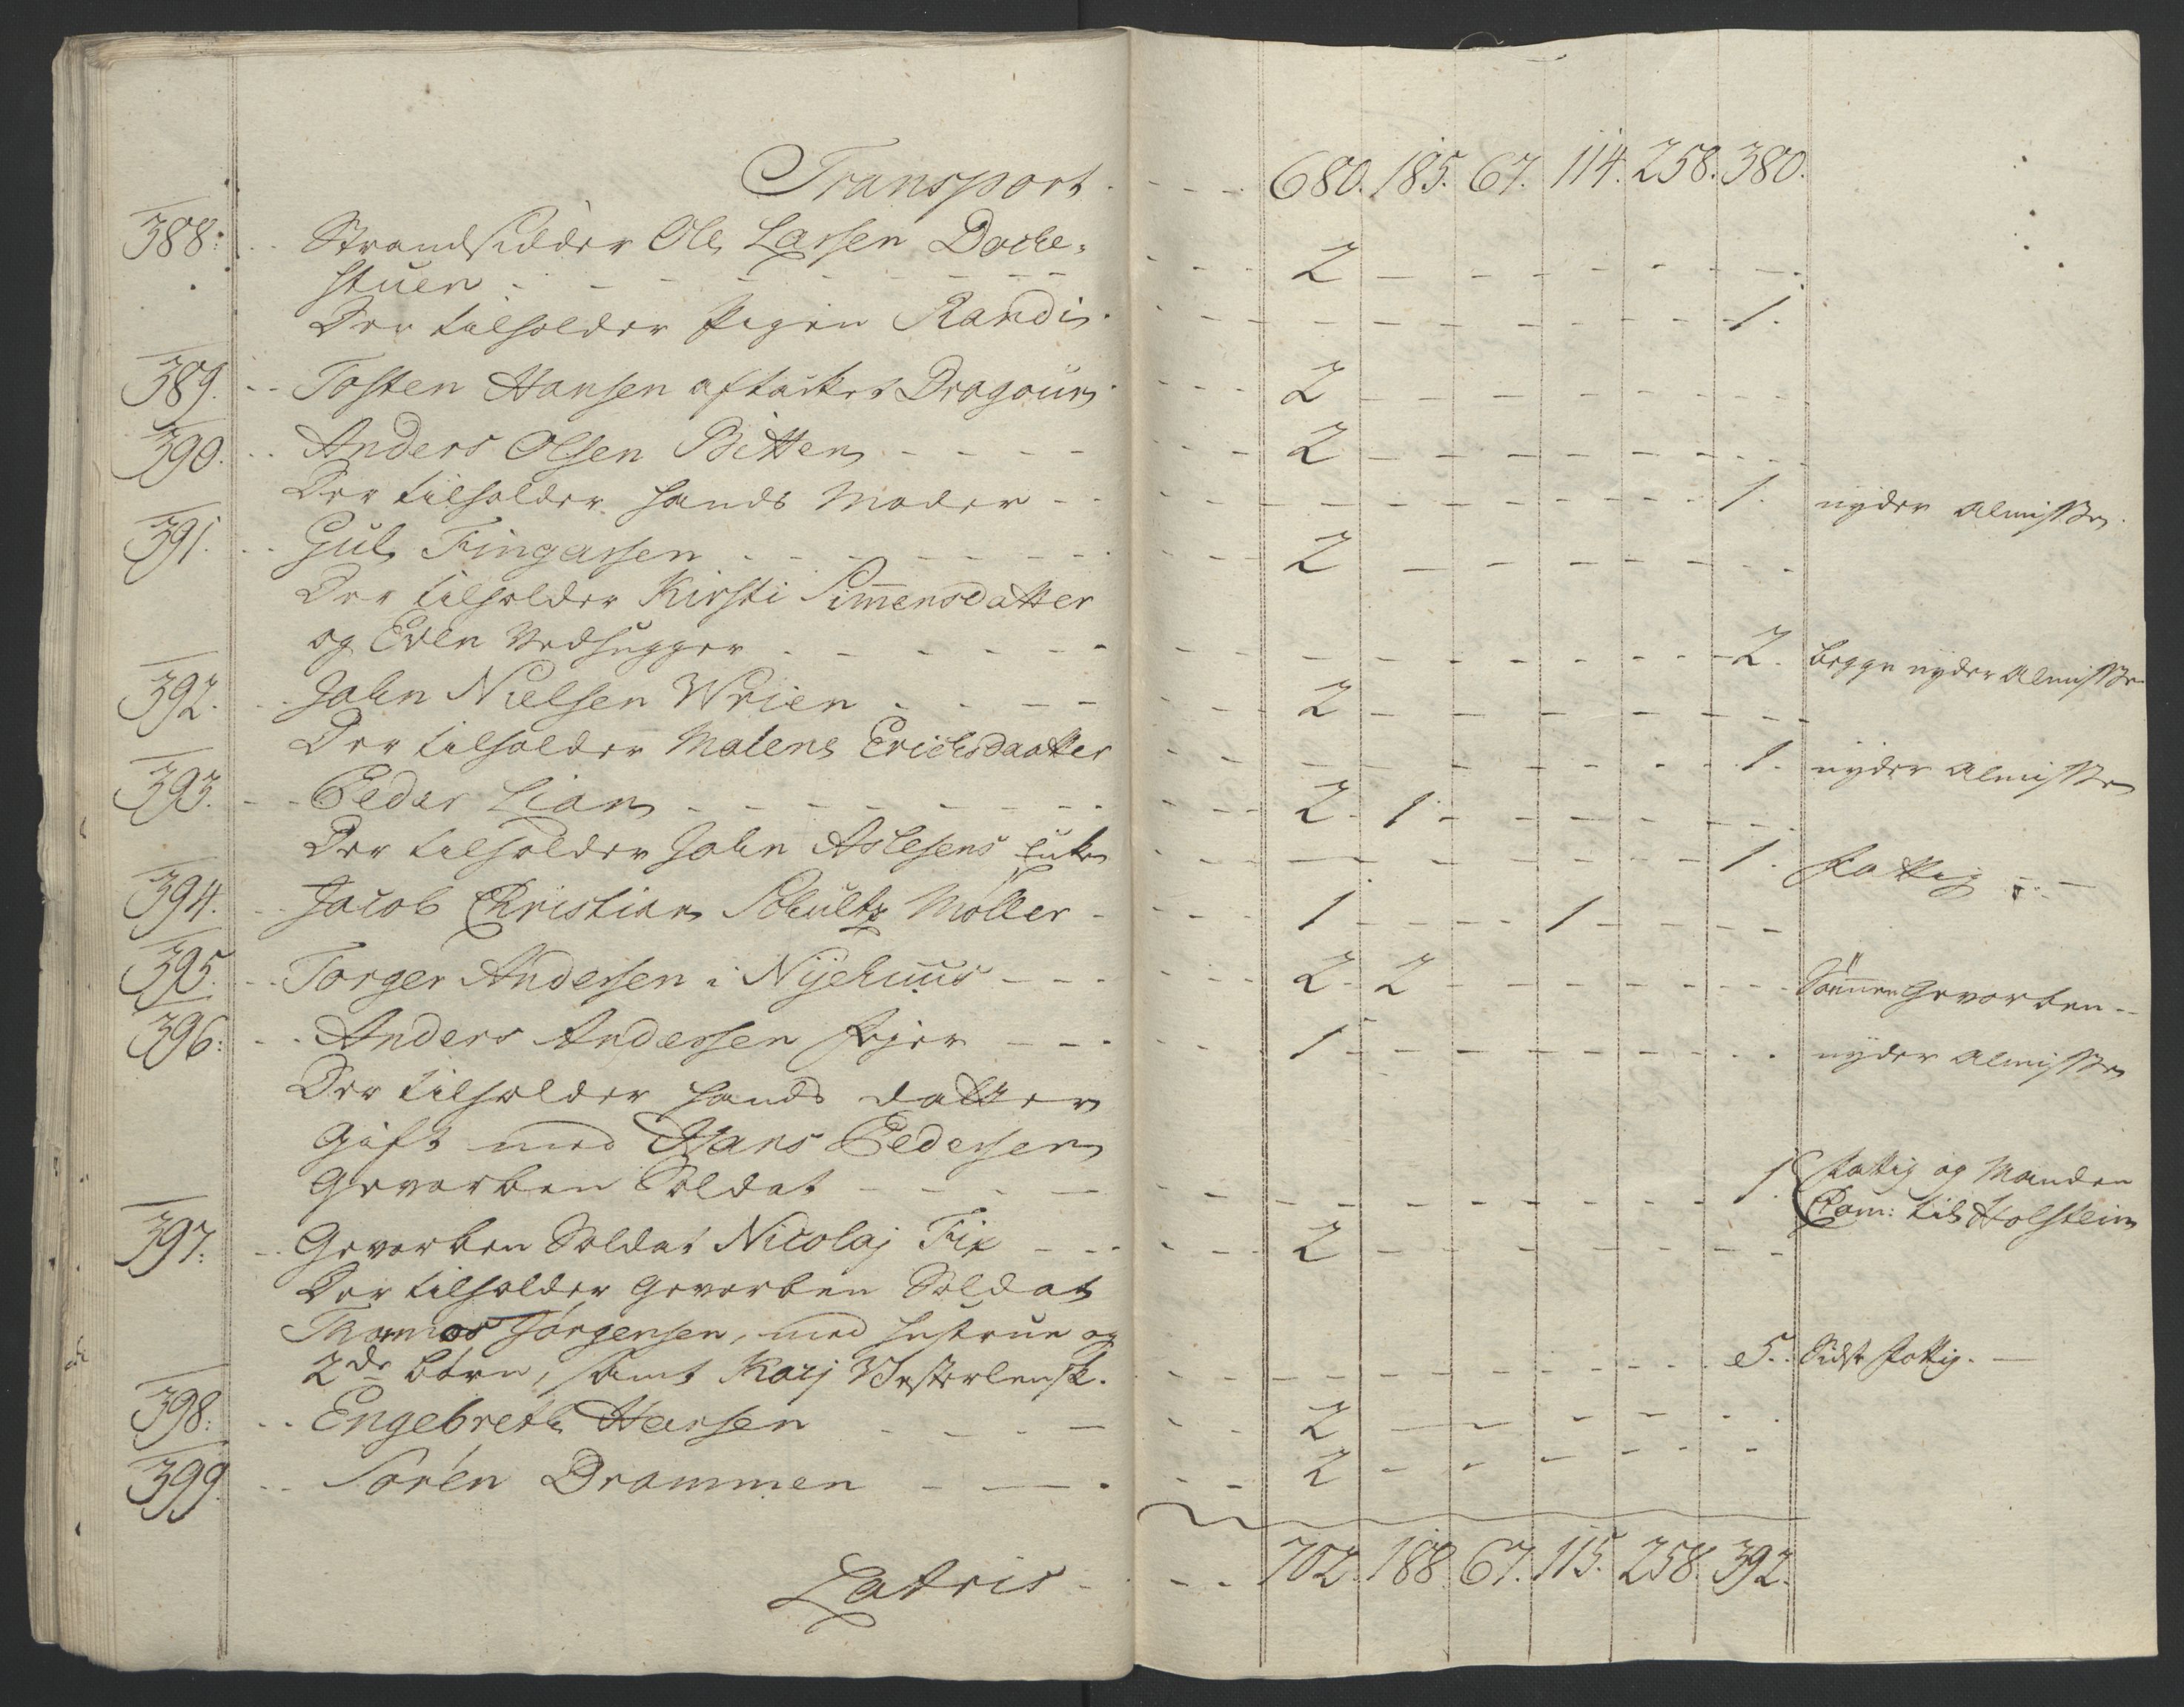 Transport - - - - 680. 185. 67. 114. 258. 380.
388: - - Strandsidder Ole Larsen Docke-
stuen - - - - - - 2 - - - - -
Der tilholder Pigen Randi - - - - - 1.
389. - - Tosten Hansen aftacket Dragoun - - - 2 - - - - -
390. - - Anders Olsen Bitten - - - - 2 - - - - -
Der tilholder hands Moder - - - - - 1. nyder Almisse.
391. - - Gul Fingarsen - - - - - 2 - - - - -
Der tilholder Kirsti Simensdatter
og Even Vedhugger - - - - - - 2. begge nyder Almisse
392. - - John Nielsen Wrien - - - - 2 - - - - -
Der tilholder Malene Erichsdaatter - - - - 1. nyder Almisse
393. - - Peder Lian - - - - - 2. 1. - - - -
Der tilholder John Aslesens Enke - - - - 1. Fattig - -
394. - - Jacob Christian Schultz Møller - - - 1 - - 1 - -
395. - - Torger Andersen i Nyehuus - - - 2. 2 - - - - Sønnen Gevorben - -
396: - - Anders Andersen Fejer - - - 1. - - - - - nyder Almisse
Der tilholder hands datter
Gift med Hans Pedersen
Gevorben Soldat - - - - - - 1. Fattig og Manden
Kom: til Holsteen
397: - - Gevorben Soldat Nicolaj Fix - - - 2 - - - - -
Der tilholder Gevorben Soldat
Thomas Jørgensen, med hustrue og
2de børn, samt Karj Westerlensk. - - - - - 5. Sidste fattig. -
398: - - Engebreth Hansen - - - - 2 - - - - -
399. - - Søren Drammen - - - 2 - - - - -
Latris - - - 702. 188. 67. 115. 258. 392.